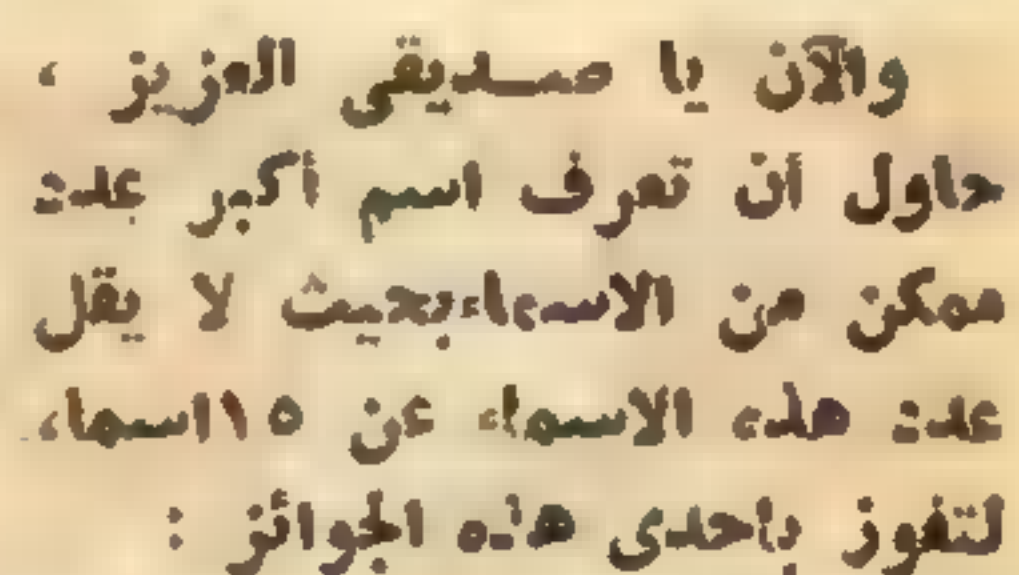 والآن يا صديقى العزيز ،
حاول أن تعرف اسم أكبر عدد
ممكن من الاسماء بحيث لا يقل
عدد هذه الاسماء عن ١٥ اسما ،
لتفوز بإحدى هذه الجوائز :